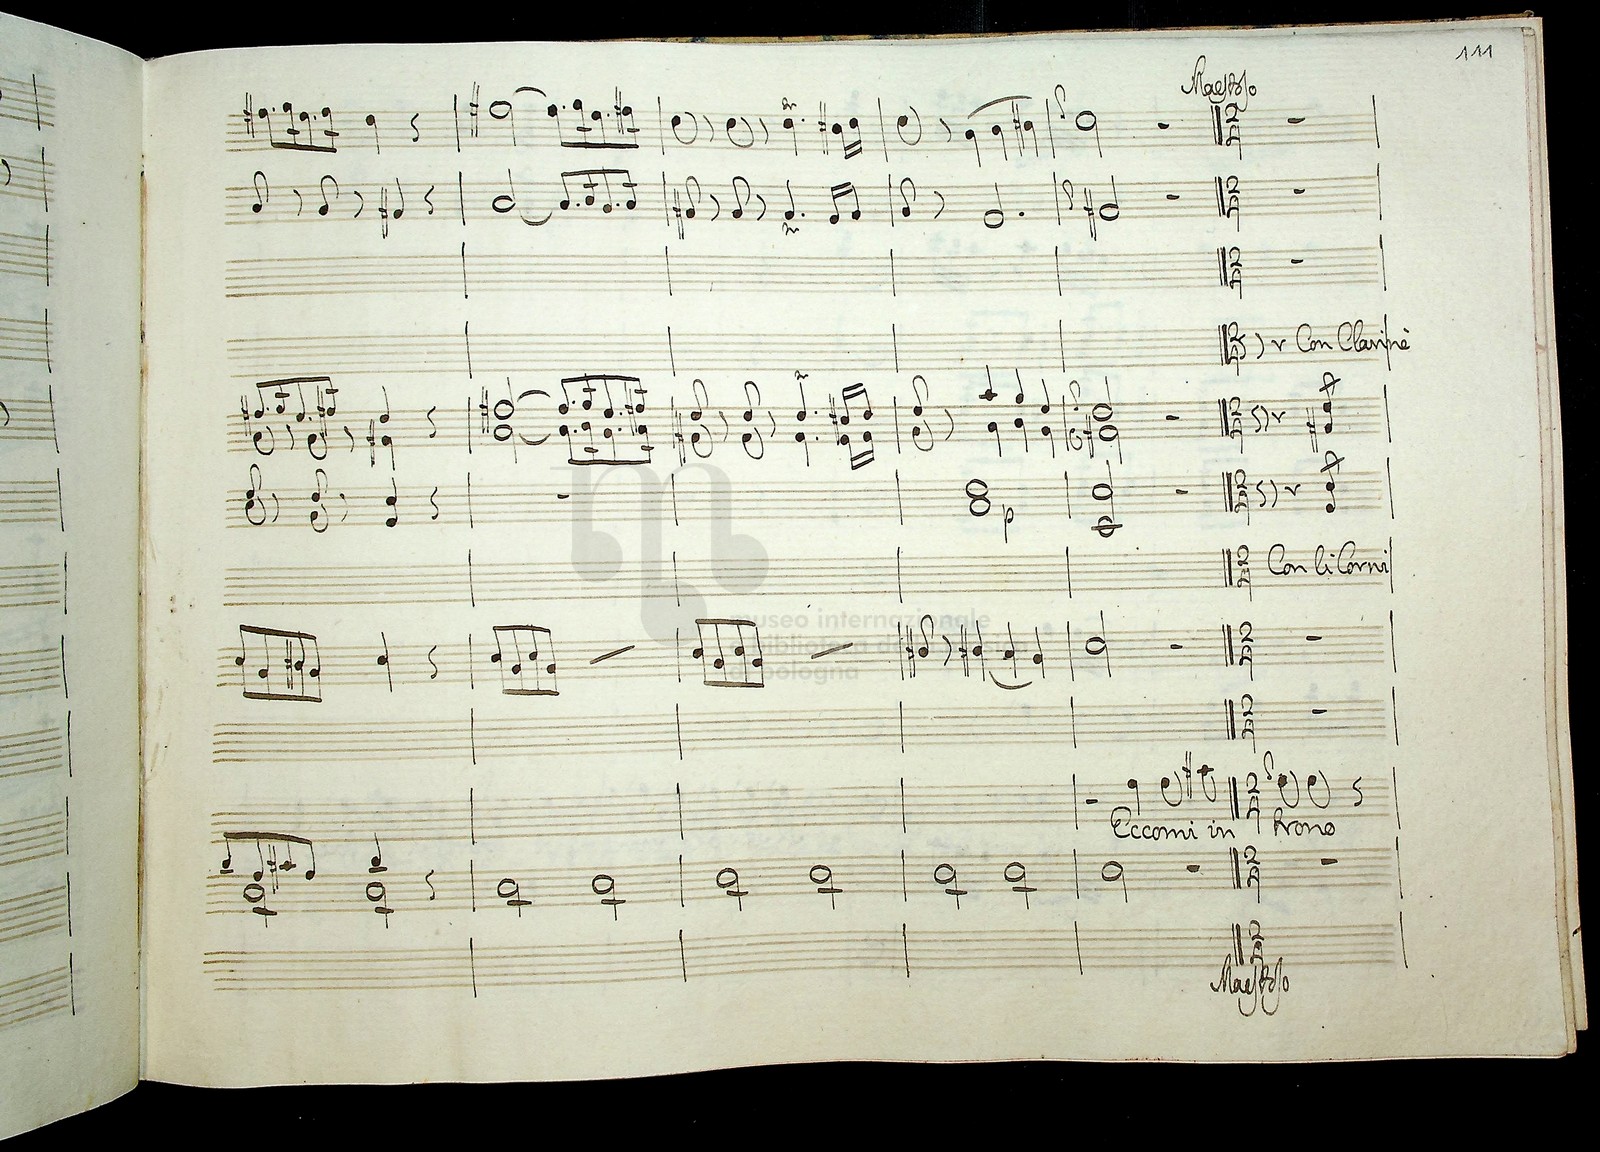 111
Maestoso
Con Clarinè
p
museo internazionale
e biblioteca della musica
di bologna
Con li Corni
Eccomi in trono
Maestoso